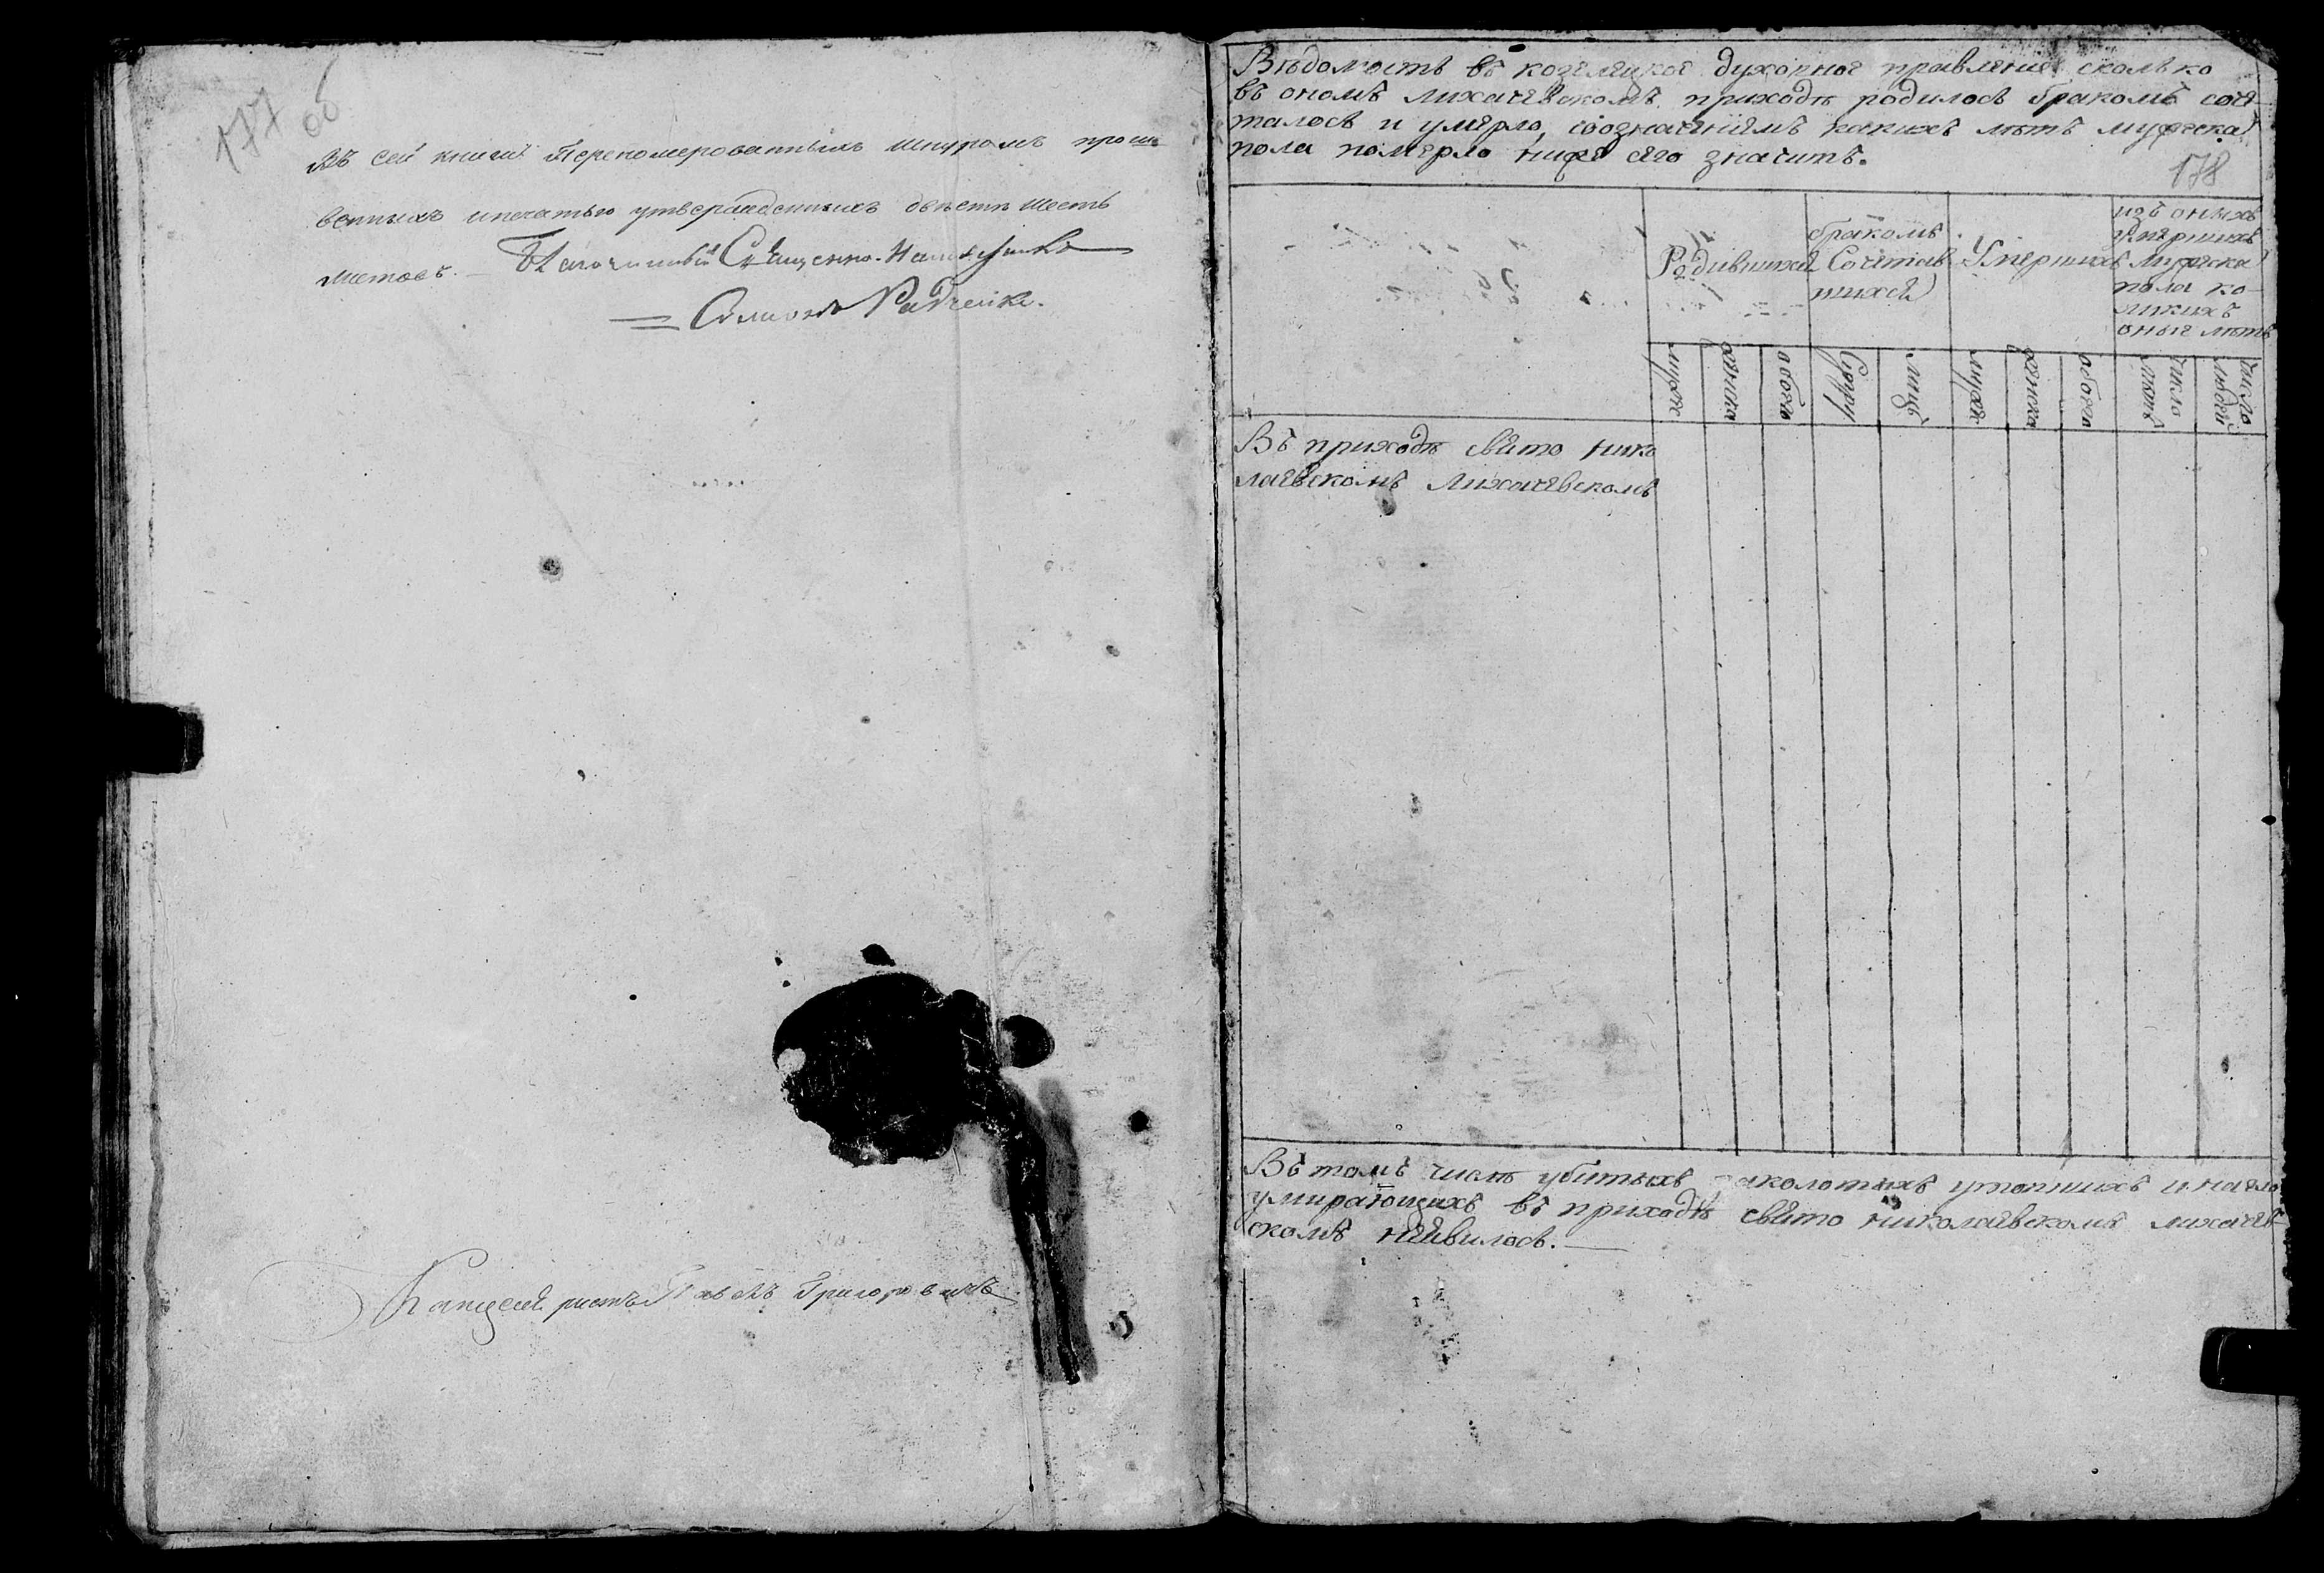 177 об
Въ сей книги переномерованныхъ шнуромъ проши
венныхъ ипечатью утвержденныхъ двѣсти шесть
листовъ. Благочинный Священно-Намѣстникъ
Симеонъ Радченко.
Канцеляристъ Павелъ Григоровичъ
Вѣдомость въ козелецкое духовное правление сколько
въ ономъ лихачевскомъ приходѣ родилось бракомъ соче-
талось и умерло, созначениемъ какихъ лѣтъ мужеска
пола померло ниже сего значитъ.
178
Родившихся
бракомъ
Сочетав
шихся
Умершихъ
изъ оныхъ
умершихъ
Мужеска
пола ко-
ликихъ
оные лѣтъ
мужеск
женска
обоего
Супру
лицъ
мужеск
женска
обоего
число
лѣтъ
число
людей
Въ приходѣ свято нико
лаевскомъ Лихачевскомъ
Въ томъ числѣ убитыхъ заколотыхъ утопшихъ и нагло
умирающихъ въ приходѣ свято николаевскомъ лихачев-
скомъ неявилось.